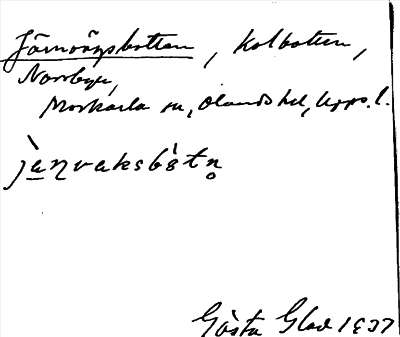 Järnvägsbotten, Kolbotten,
Norrbyn,
Morkarla sn, Olands hd, Upps. l.
Gösta Glad 1937